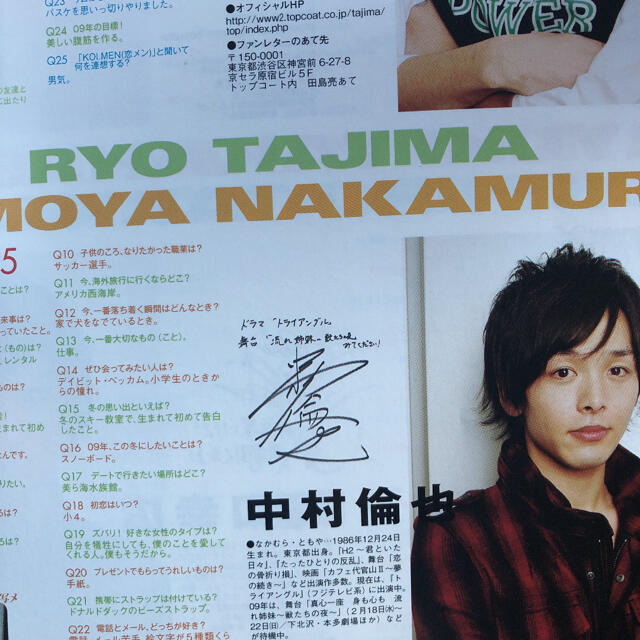 Q23
バスケを思いっ切りやりました。
Q24 09年の目標！
美しい腹筋を作る。
Q25 「KOI.MEN(恋メン)」と聞いて
何を連想する？
男気。
の友達と
に出たり
●オフィシャルHP
http://www2.topcoat.co.jp/tajima/
top.php
●ファンレターのあて先
〒150-0001
東京都渋谷区神宮前6-27-8
京セラ原宿ビル5F
トップコート内 田島亮あて
POWER
RYO TAJIMA
MOYA NAKAMUR
5
ことは？
来事は？
っていたこと。
く(もの)は？
レンタル
ものは？
まれて初め
なんです。
りたい。
るは？
は？
Q10 子供のころ、なりたかった職業は？
サッカー選手。
Q11 今、海外旅行に行くならどこ？
アメリカ西海岸。
Q12 今、一番落ち着く瞬間はどんなとき？
家で犬をなでているとき。
Q13 今、一番大切なもの（こと）。
仕事。
Q14 ぜひ会ってみたい人は？
デイビット・ベッカム。小学生のときか
らの憧れ。
Q15 冬の思い出といえば？
冬のスキー教室で、生まれて初めて告白
したこと。
Q16 09年、この冬にしたいことは？
スノーボード。
Q17 デートで行きたい場所はどこ？
美ら海水族館。
Q18 初恋はいつ？
小4。
Q19 ズバリ！ 好きな女性のタイプは？
自分を犠牲にしても、僕のことを愛して
くれる人。僕もそうだから。
Q20 プレゼントでもらってうれしいものは？
手紙。
Q21 携帯にストラップは付けている？
ドナルドダックのビーズストラップ。
Q22 電話とメール、どっちが好き？
電話。メール苦手、絵文字が5種類くら
ドラマ「トライアングル」
舞台「流れ姉妹〜獣たちの夜〜」
みてください！
中村倫也
●なかむら・ともや…1986年12月24日
生まれ。東京都出身。「H2〜君といた
日々」、「たったひとりの反乱」、舞台「恋
の骨折り損」、映画「カフェ代官山Ⅱ〜夢
の続き〜」など出演作多数。現在は、「ト
ライアングル」(フジテレビ系)に出演中。
09年は、舞台「真心一座 身も心も 流
れ姉妹〜獣たちの夜〜」(2月18日㈬〜
22日㈰／下北沢・本多劇場ほか）など
が待機中。